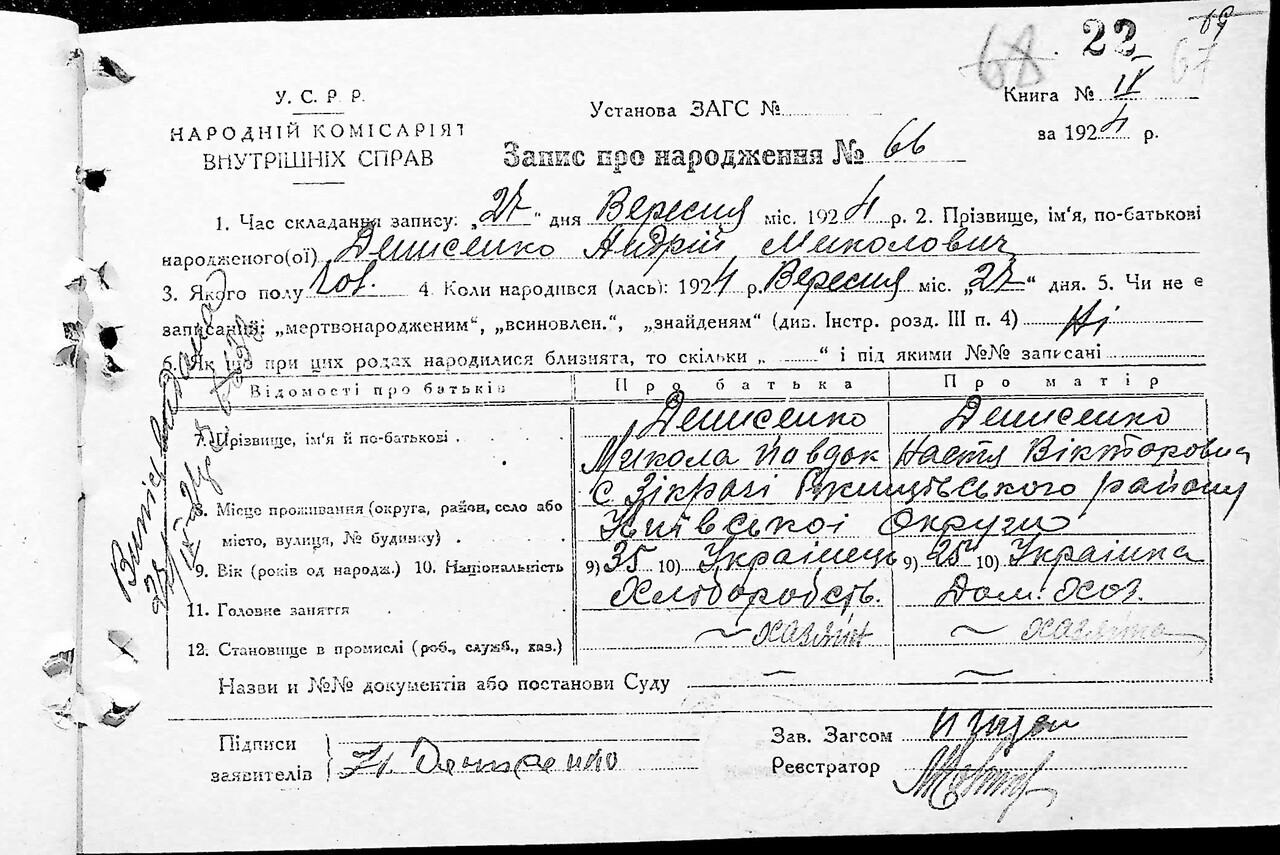 68 22 69 67
У. С. Р. Р.
НАРОДНІЙ КОМІСАРІЯТ
ВНУТРІШНІХ СПРАВ
Установа ЗАГС №
Книга № IV
за 1924 р.
Запис про народження № 66
1. Час складання запису: „27“ дня Вересня міс. 1924 р. 2. Прізвище, ім'я, по-батькові
народженого(ої) Денисенко Андрій Миколович
3. Якого полу чол. 4. Коли народився (лась): 1924 р. Вересня міс. „27“ дня. 5. Чи не є
записаний: „мертвонародженим“, „всиновлен.“, „знайденям“ (див. Інстр. розд. III п. 4) Ні
6. Як що при цих родах народилися близнята, то скільки „ “ і під якими №№ записані
Відомості про батьків Про батька Про матір
7. Прізвище, ім'я й по-батькові Денисенко Денисенко
Микола Настя Вікторовна
8. Місце проживання (округа, район, село або
місто, вулиця, № будинку)
с Зікрачі Ржищівського району
Київської Округи
9. Вік (років од народж.) 10. Національність 9) 35 10) Українець 9) 25 10) Українка
11. Головне заняття Хлібородств. Дом. Хоз.
12. Становище в промислі (роб., служб., хаз.) ~ хазяїн ~ хазяйка
Назви и №№ документів або постанови Суду — ~
Підписи
заявителів
Денисенко
Зав. Загсом
Реєстратор